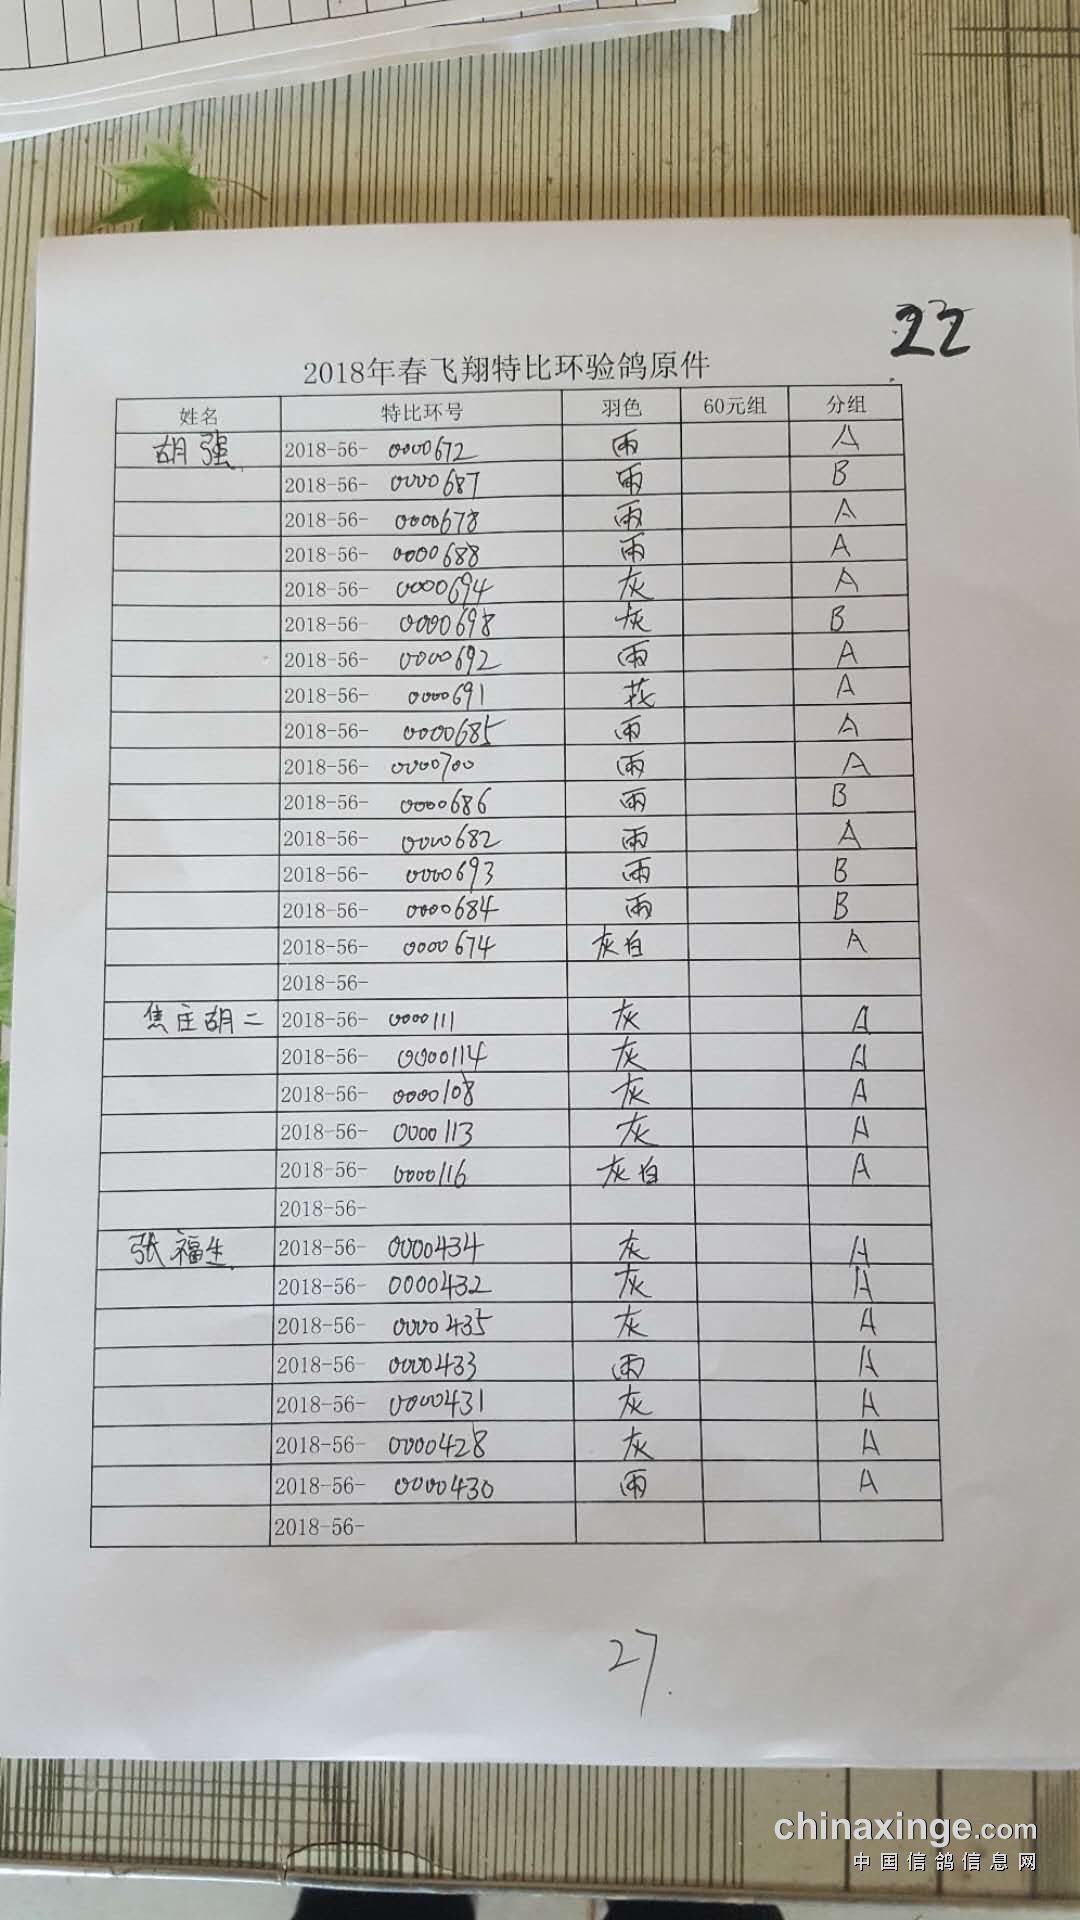 22
2018年春飞翔特比环验鸽原件
姓名 特比环号 羽色 60元组 分组
胡强 2018-56- 0000672 雨 A
2018-56- 0000687 雨 B
2018-56- 0000678 雨 A
2018-56- 0000688 雨 A
2018-56- 0000694 灰 A
2018-56- 0000698 灰 B
2018-56- 0000692 雨 A
2018-56- 0000691 花 A
2018-56- 0000685 雨 A
2018-56- 0000700 雨 A
2018-56- 0000686 雨 B
2018-56- 0000682 雨 A
2018-56- 0000693 雨 B
2018-56- 0000684 雨 B
2018-56- 0000674 灰白 A
2018-56-
焦庄胡二 2018-56- 0000111 灰 A
2018-56- 0000114 灰 A
2018-56- 0000108 灰 A
2018-56- 0000113 灰 A
2018-56- 0000116 灰白 A
2018-56-
张福生 2018-56- 0000434 灰 A
2018-56- 0000432 灰 A
2018-56- 0000435 灰 A
2018-56- 0000433 雨 A
2018-56- 0000431 灰 A
2018-56- 0000428 灰 A
2018-56- 0000430 雨 A
2018-56-
27.
chinaxinge.com
中国信鸽信息网